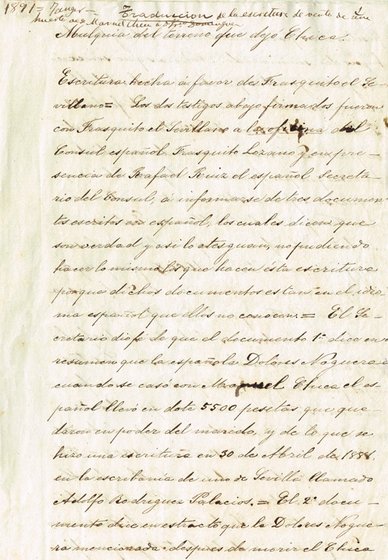 1891 = Tanger = Traduccion de la escritura de venta de una
muerte de Manuel Checa
Mulquia del terreno que dejo Checa.
Escritura hecha á favor de Frasquito el Se
villano = Los dos testigos abajo firmados fueron
con Frasquito el Sevillano a la oficina del
Consul español Frasquito Lozano y en pre
sencia de Rafael Ruiz el español Secreta
rio del Consul, á informarse de tres documen
tos escritos en español, los cuales dicen que
son verdad y asi lo atestguan, no pudiendo
hacer lo mismo los que hacen esta escritura
porque dichos documentos estan en el idio
ma español que ellos no conocen = El Se
cretario dijo que el documento 1º dice en
resumen que la española Dolores Noguera
cuando se casó con Manuel Checa el es
pañol llevó en dote 5500 pesetas que que
daron en poder del marido, y de lo que se
hizo una escritura en 30 de Abril de
en la escribania de uno de Sevilla llamado
Adolfo Rodriguez Palacios. = El 2º docu
mento dice en estracto que la Dolores Nogue
ra mencionada despues de morir el Checa